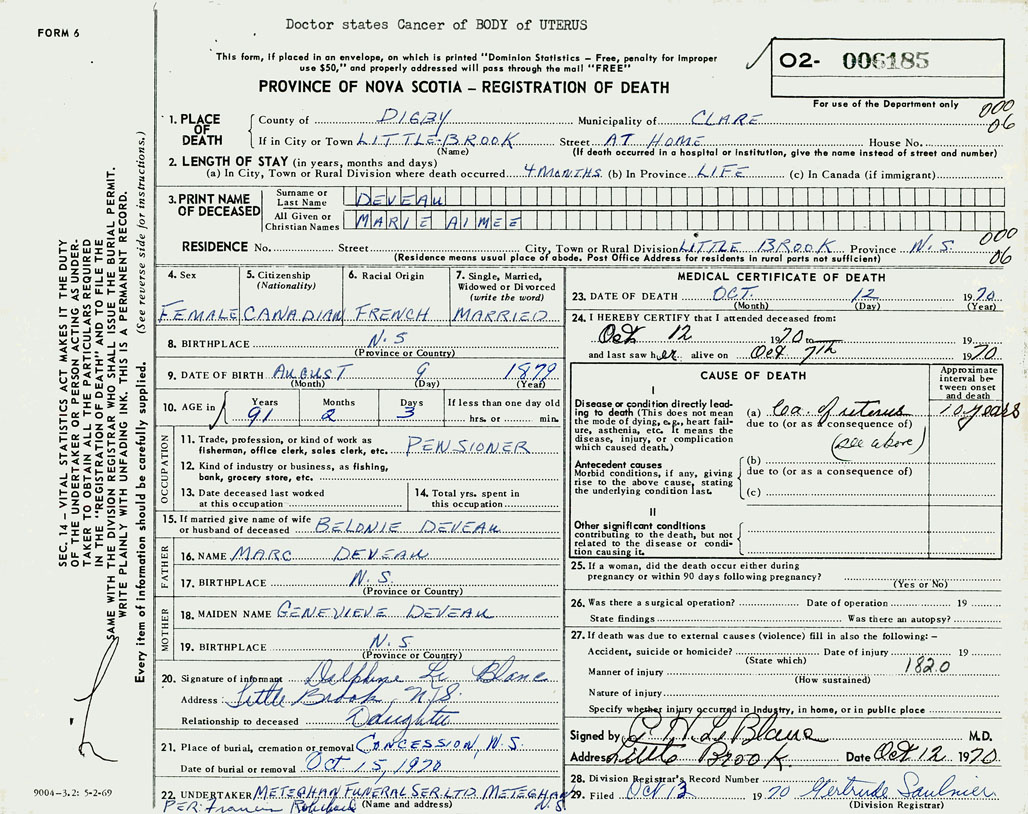 FORM 6
Doctor states Cancer of BODY of UTERUS
This form, if placed in an envelope, on which is printed "Dominion Statistics – Free, penalty for improper
use $50," and properly addressed will pass through the mail "FREE"
O2- 006185
PROVINCE OF NOVA SCOTIA – REGISTRATION OF DEATH
For use of the Department only
000
06
1. PLACE OF DEATH
County of DIGBY Municipality of CLARE
If in City or Town LITTLE-BROOK Street AT HOME House No.
(Name) (If death occurred in a hospital or institution, give the name instead of street and number)
2. LENGTH OF STAY (in years, months and days)
(a) In City, Town or Rural Division where death occurred 4 MONTHS (b) In Province LIFE (c) In Canada (if immigrant)
3. PRINT NAME OF DECEASED
Surname or Last Name DEVEAU
All Given or Christian Names MARIE AIMEE
RESIDENCE No. Street City, Town or Rural Division LITTLE BROOK Province N.S.
000
06
(Residence means usual place of abode. Post Office Address for residents in rural parts not sufficient)
4. Sex
FEMALE
5. Citizenship
(Nationality)
CANADIAN
6. Racial Origin
FRENCH
7. Single, Married,
Widowed or Divorced
(write the word)
MARRIED
8. BIRTHPLACE N.S
(Province or Country)
9. DATE OF BIRTH AUGUST 9 1879
(Month) (Day) (Year)
10. AGE in Years Months Days If less than one day old
91 2 3 hrs. or min.
OCCUPATION
11. Trade, profession, or kind of work as
fisherman, office clerk, sales clerk, etc. PENSIONER
12. Kind of industry or business, as fishing,
bank, grocery store, etc.
13. Date deceased last worked
at this occupation
14. Total yrs. spent in
this occupation
15. If married give name of wife
or husband of deceased BELONIE DEVEAU
FATHER
16. NAME MARC DEVEAU
17. BIRTHPLACE N.S.
(Province or Country)
MOTHER
18. MAIDEN NAME GENEVIEVE DEVEAU
19. BIRTHPLACE N.S.
(Province or Country)
20. Signature of informant Delphine Le Blanc
Address Little Brook, N.S.
Relationship to deceased Daughter
21. Place of burial, cremation or removal CONCESSION, N.S.
Date of burial or removal Oct 15, 1970
22. UNDERTAKER METEGHAN FUNERAL SER. LTD. METEGHAN N.S.
PER: Francis (Name and address)
MEDICAL CERTIFICATE OF DEATH
23. DATE OF DEATH OCT. 12 1970
(Month) (Day) (Year)
24. I HEREBY CERTIFY that I attended deceased from:
Oct 12 1970 to 19
and last saw her alive on Oct 7th 1970
CAUSE OF DEATH
Approximate
interval be-
tween onset
and death
I
Disease or condition directly lead-
ing to death (This does not mean
the mode of dying, e.g., heart fail-
ure, asthenia, etc. It means the
disease, injury, or complication
which caused death.)
(a) Ca. of uterus 10 years
due to (or as a consequence of)
(see above)
Antecedent causes
Morbid conditions, if any, giving
rise to the above cause, stating
the underlying condition last.
(b)
due to (or as a consequence of)
(c)
II
Other significant conditions
contributing to the death, but not
related to the disease or condi-
tion causing it.
25. If a woman, did the death occur either during
pregnancy or within 90 days following pregnancy?
(Yes or No)
26. Was there a surgical operation? Date of operation 19
State findings Was there an autopsy?
27. If death was due to external causes (violence) fill in also the following: –
Accident, suicide or homicide? Date of injury 19
(State which)
Manner of injury 1820
(How sustained)
Nature of injury
Specify whether injury occurred in industry, in home, or in public place
Signed by G. H. Le Blanc M.D.
Address Little Brook. Date Oct 12 1970
28. Division Registrar's Record Number
29. Filed Oct 13 1970 Gertrude Saulnier
(Division Registrar)
SEC. 14 – VITAL STATISTICS ACT MAKES IT THE DUTY
OF THE UNDERTAKER OR PERSON ACTING AS UNDER-
TAKER TO OBTAIN ALL THE PARTICULARS REQUIRED
IN THE "REGISTRATION OF DEATH" AND TO FILE THE
SAME WITH THE DIVISION REGISTRAR WHO SHALL ISSUE THE BURIAL PERMIT.
WRITE PLAINLY WITH UNFADING INK. THIS IS A PERMANENT RECORD.
Every item of information should be carefully supplied. (See reverse side for instructions.)
9004-3.2: 5-2-69